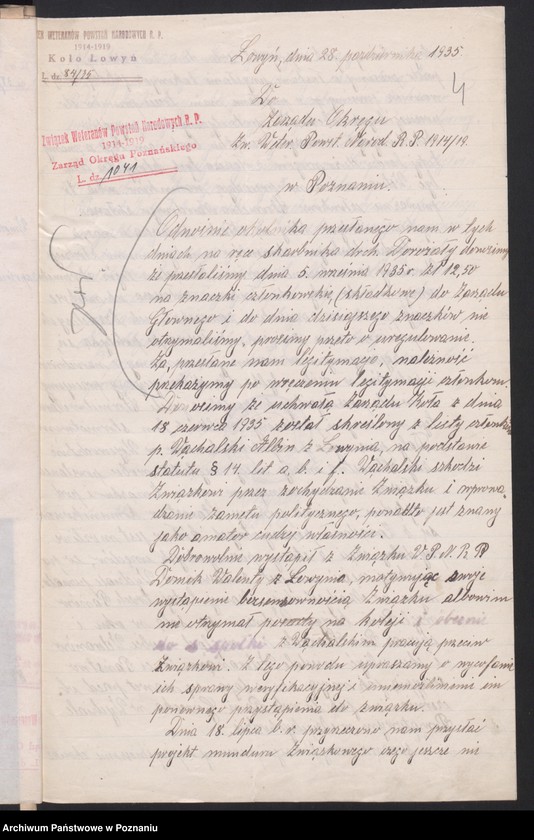 WETERANÓW POWSTAŃ NARODOWYCH R. P.
1914-1919
Koło Łowyń
L. dz. 84/35
Łowyń, dnia 28. października 1935
4
Do
Zarządu Okręgu
Zw. Weter. Powst. Narod. R. P. 1914/19.
w Poznaniu.
Związek Weteranów Powstań Narodowych R. P.
1914-1919
Zarząd Okręgu Poznańskiego
L. dz. 1041
Odnośnie okólnika przesłanego nam w tych
dniach na ręce skarbnika drch. Dorożały donosimy
że przesłaliśmy dnia 5. września 1935 r. zł 12,50
na znaczki członkowskie (składkowe) do Zarządu
Głównego i do dnia dzisiejszego znaczków nie
otrzymaliśmy, prosimy przeto o uregulowanie.
Za, przesłane nam legitymacje, należność
przekażymy po wręczeniu legitymacji członkom.
Donosimy że uchwałą Zarządu Koła z dnia
18 czerwca 1935 został skreślony z listy członków
p. Wachalski Albin z Łowynia, na podstawie
statutu § 14. let a. b. i f. Wachalski szkodzi
Związkowi przez zochydzanie Związku i wprowa
dzanie zamętu politycznego, ponadto jest znany
jako amator cudzej własności.
Dobrowolnie wystąpił z Związku W. P. N. R. P.
Domek Walenty z Łowynia, motywując swoje
wystąpienie bezsensownością Związku albowiem
nie otrzymał posady na kolei i obecnie
do spółki z Wachalskim pracują przeciw
Związkowi. Z tego powodu upraszamy o wycofanie
ich sprawy weryfikacyjnej i uniemożliwienie im
ponownego przystąpienia do związku.
Dnia 18. lipca b. r. przyrzeczono nam przysłać
projekt mundum Związkowego czego jeszcze nie
Archiwum Państwowe w Poznaniu